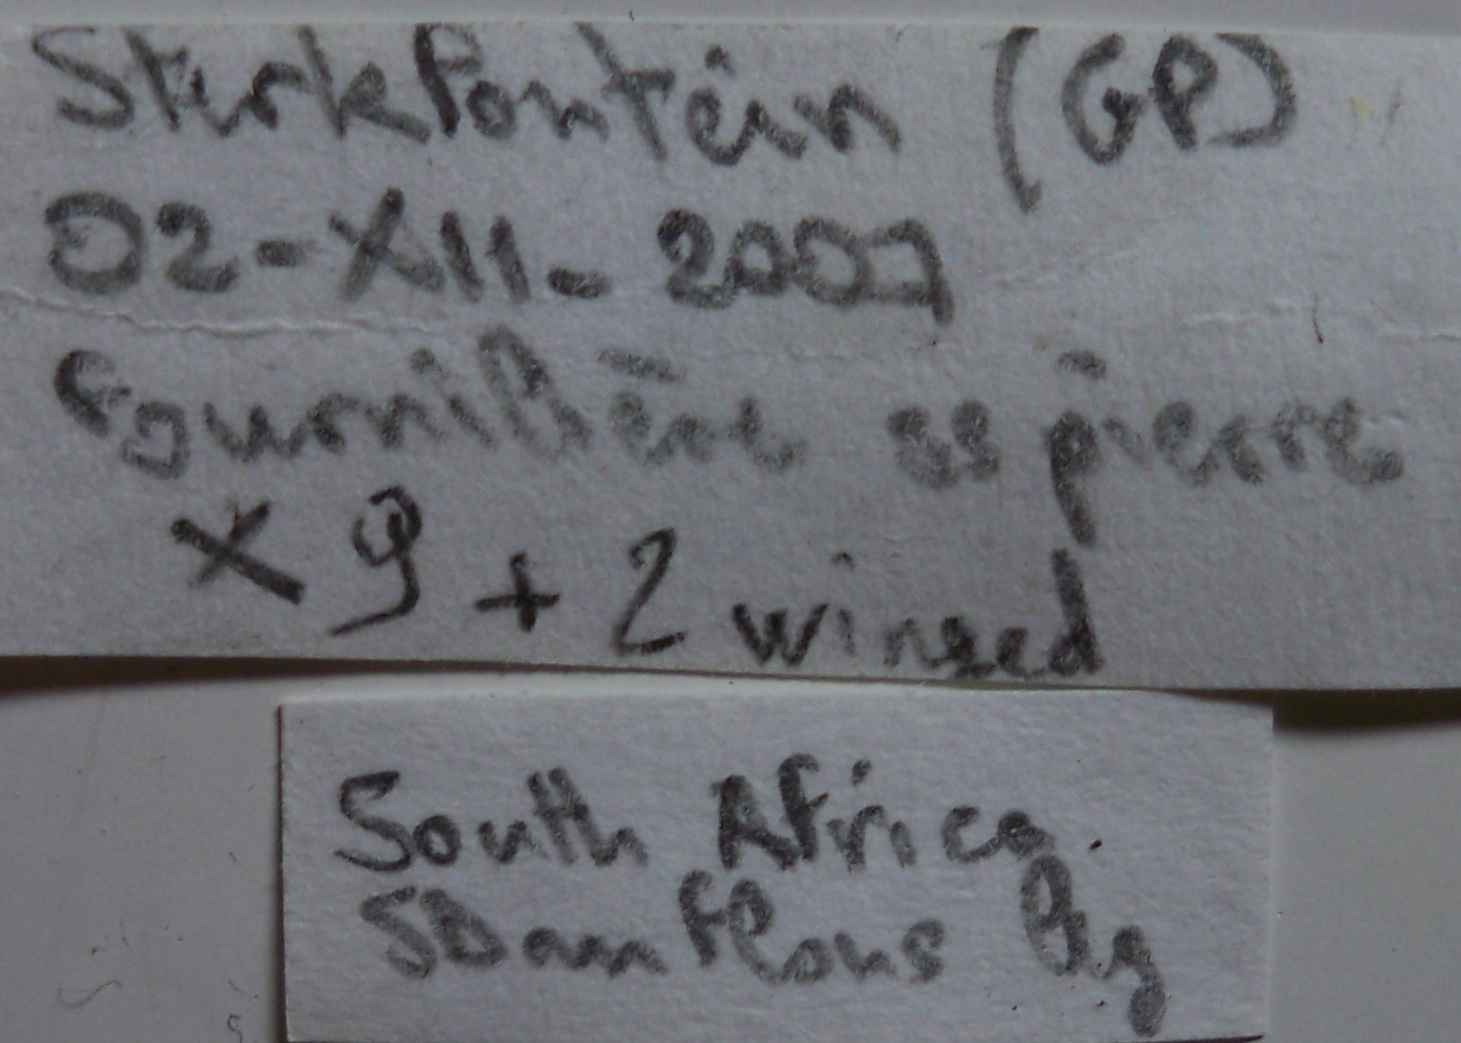 Sterkfontein (GP)
02-XII-2007
fourmilière ss pierre
x 9 + 2 winged
South Africa
S Danflous